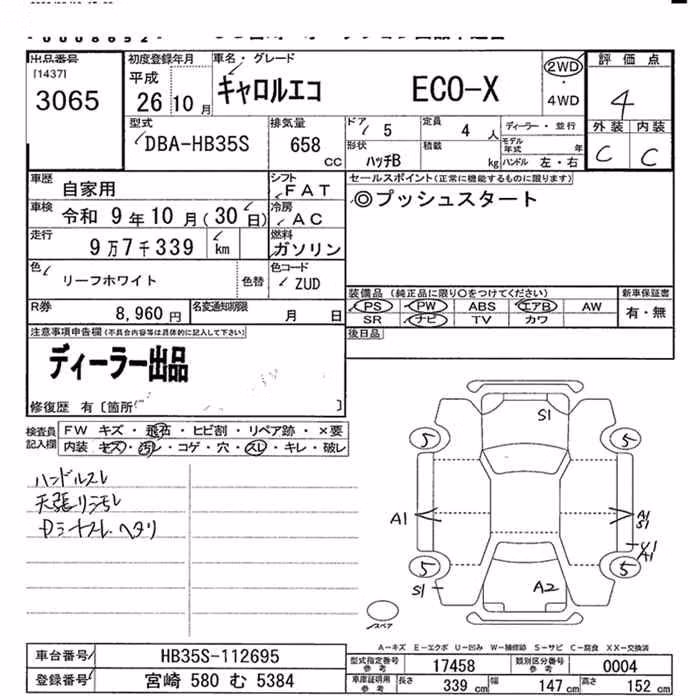 出品番号
[1437]
3065
初度登録年月
平成
26 10 月
車名・グレード
キャロルエコ ECO-X
2WD
・
4WD
評価点
4
外装 内装
C C
型式
DBA-HB35S
排気量
658
cc
ドア 5
定員 4 人
ディーラー・並行
モデル年式 年
形状 ハッチB
積載 kg
ハンドル 左・右
車歴 自家用
シフト FAT
車検 令和 9 年 10 月(30 日)
冷房 AC
走行 9万7千339 km
燃料 ガソリン
色 リーフホワイト
色替
色コード ZUD
R券 8,960 円
名変通知期限 月 日
セールスポイント(正常に機能するものに限ります)
◎プッシュスタート
装備品(純正品に限り〇をつけてください)
PS PW ABS エアB AW
SR ナビ TV カワ
新車保証書
有・無
後日品
注意事項申告欄(不具合内容等は具体的に記入して下さい)
ディーラー出品
修復歴 有〔箇所 〕
検査員記入欄
FW キズ・飛石・ヒビ割・リペア跡・×要
内装 キズ・汚レ・コゲ・穴・スレ・キレ・破レ
ハンドルスレ
天張リヨゴレ
Dシートスレ.ヘタリ
S1
5 5
A1
A1
S1
U1
A1
5 5
S1
A2
スペア
A－キズ E－エクボ U－凹み W－補修跡 S－サビ C－腐食 XX－交換済
車台番号 HB35S-112695
登録番号 宮崎 580 む 5384
型式指定番号 参考 17458
類別区分番号 参考 0004
車庫証明用 参考
長さ 339 cm 幅 147 cm 高さ 152 cm